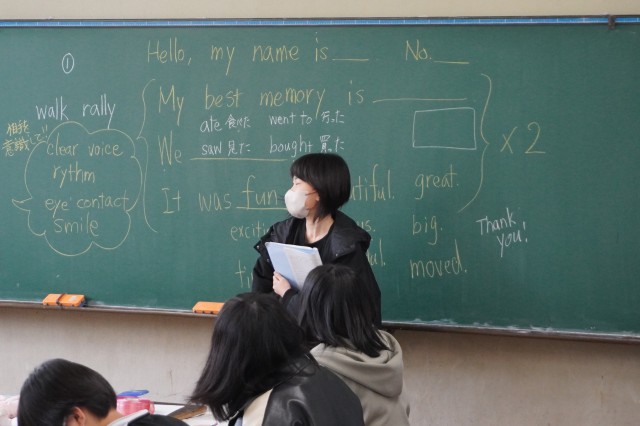 ①
Hello, my name is ___ No. ___
walk rally
相手
意識して!!
clear voice
rythm
eye contact
smile
My best memory is ___
ate 食べた went to 行った
We saw 見た bought 買った
It was fun great.
big.
moved.
× 2
Thank you!